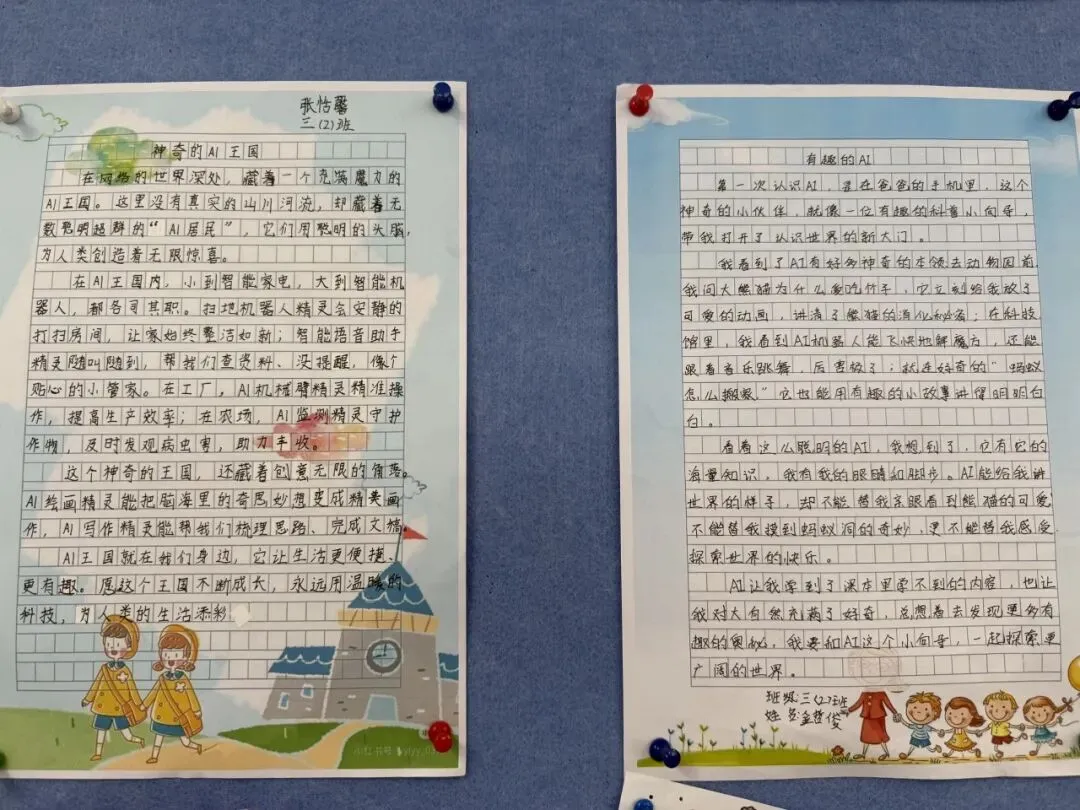 张恬馨
三(2)班
神奇的AI王国
在网络的世界深处，藏着一个充满魔力的
AI王国。这里没有真实的山川河流，却藏着无
数聪明超群的“AI居民”，它们用聪明的头脑，
为人类创造着无限惊喜。
在AI王国内，小到智能家电，大到智能机
器人，都各司其职。扫地机器人精灵会安静的
打扫房间，让家始终整洁如新；智能语音助手
精灵随叫随到，帮我们查资料、没提醒，像个
贴心的小管家。在工厂，AI机械臂精灵精准操
作，提高生产效率；在农场，AI监测精灵守护
作物，及时发现病虫害，助力丰收。
这个神奇的王国，还藏着创意无限的角落。
AI绘画精灵能把脑海里的奇思妙想变成精美画
作，AI写作精灵能帮我们梳理思路、完成文稿。
AI王国就在我们身边，它让生活更便捷、
更有趣。愿这个王国不断成长，永远用温暖的
科技，为人类的生活添彩
小红书号
有趣的AI
第一次认识AI，是在爸爸的手机里，这个
神奇的小伙伴，就像一位有趣的科普小向导，
带我打开了认识世界的新大门。
我看到了AI有好多神奇的本领去动物园前
我问大熊猫为什么爱吃竹子，它立刻给我放了
可爱的动画，讲清了熊猫的消化秘密；在科技
馆里，我看到AI机器人能飞快地解魔方，还能
跟着音乐跳舞，厉害极了；就连好奇的“蚂蚁
怎么搬家”它也能用有趣的小故事讲得明明白
白。
看着这么聪明的AI，我想到了，它有它的
海量知识，我有我的眼睛和脚步。AI能给我讲
世界的样子，却不能替我亲眼看到熊猫的可爱
不能替我摸到蚂蚁洞的奇妙，更不能替我感受
探索世界的快乐。
AI让我学到了课本里学不到的内容，也让
我对大自然充满了好奇，总想着去发现更多有
趣的奥秘，我要和AI这个小向导，一起探索更
广阔的世界。
班级：三(2)班
姓名：金哲俊